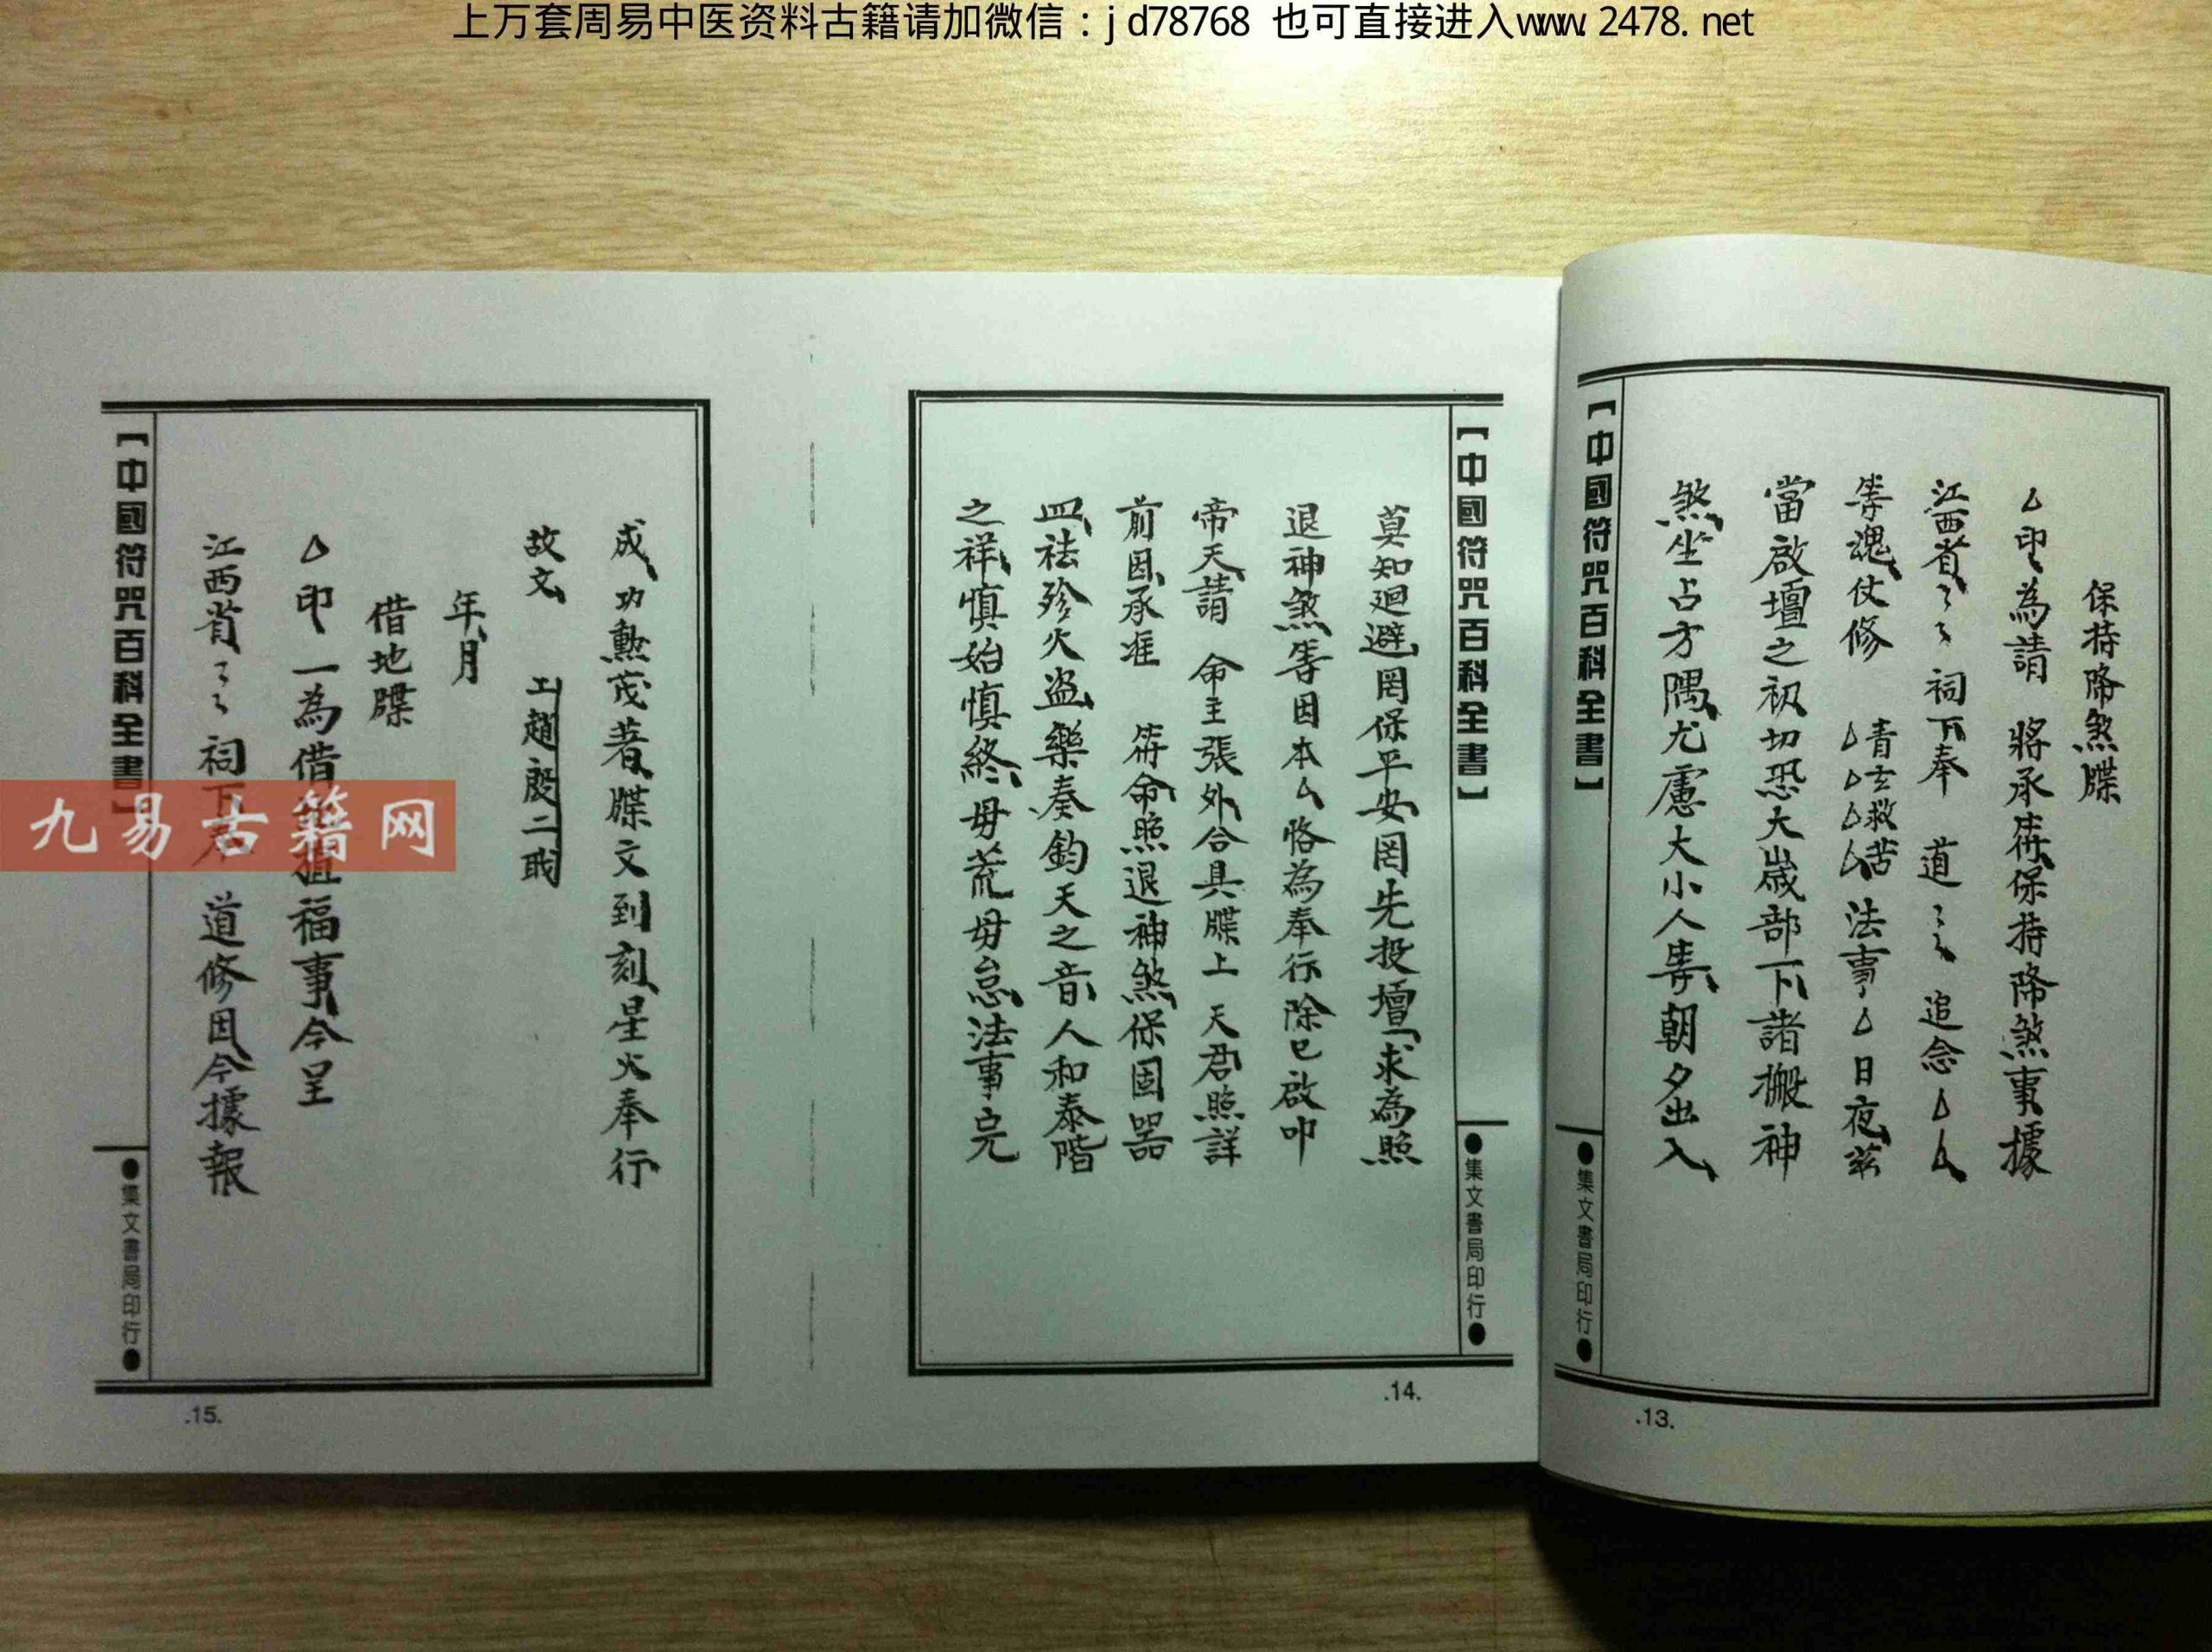 上万套周易中医资料古籍请加微信：jd78768 也可直接进入www.2478.net
保持降煞牒
△印為請 將承佛保持降煞事據
江西省〻〻祠下奉 道〻〻追念△△
等魂仗修 青玄救苦 △△△△法事△日夜兹
當啟壇之初切恐大歲部下諸搬神
煞坐占方隅尤慮大小人等朝夕出入
【中國符咒百科全書】
●集文書局印行●
.13.
【中國符咒百科全書】
●集文書局印行●
莫知廻避罔保平安罔先投壇求為照
退神煞等因本△恪為奉行除已啟叩
帝天請 命主張外合具牒上 天君照詳
前因承准 符命照退神煞保固器
皿祛殄火盜樂奏鈞天之音人和泰階
之祥慎始慎終毋荒毋怠法事完
.14.
成功勲茂著牒文到刻星火奉行
故文 上趙殷二戝
年月
借地牒
△印一為借 植福事今呈
江西省〻〻祠下 道修因今據報
【中國符咒百科全書】
●集文書局印行●
.15.
九易古籍网